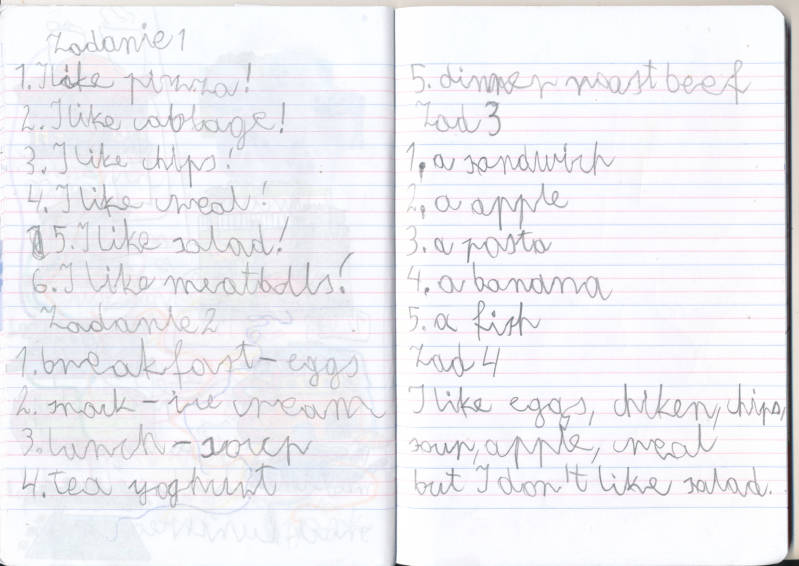 Zadanie 1
1. I like pizza!
2. I like cabbage!
3. I like chips!
4. I like creal!
5. I like salad!
6. I like meatballs!
Zadanie 2
1. breakfast – eggs
2. snack – ice cream
3. lunch – soup
4. tea yoghurt
5. dinner roast beef
Zad 3
1. a sandwich
2. a apple
3. a pasta
4. a banana
5. a fish
Zad 4
I like eggs, chiken, chips,
soup, apple, creal
but I don't like salad.